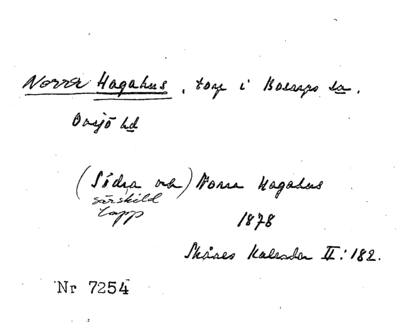 Norra Hagahus, torp i Bosarps sn.
Onsjö hd
(Södra och) Norra Hagahus
särskild
lapp
1878
Skånes Kalender II: 182.
Nr 7254